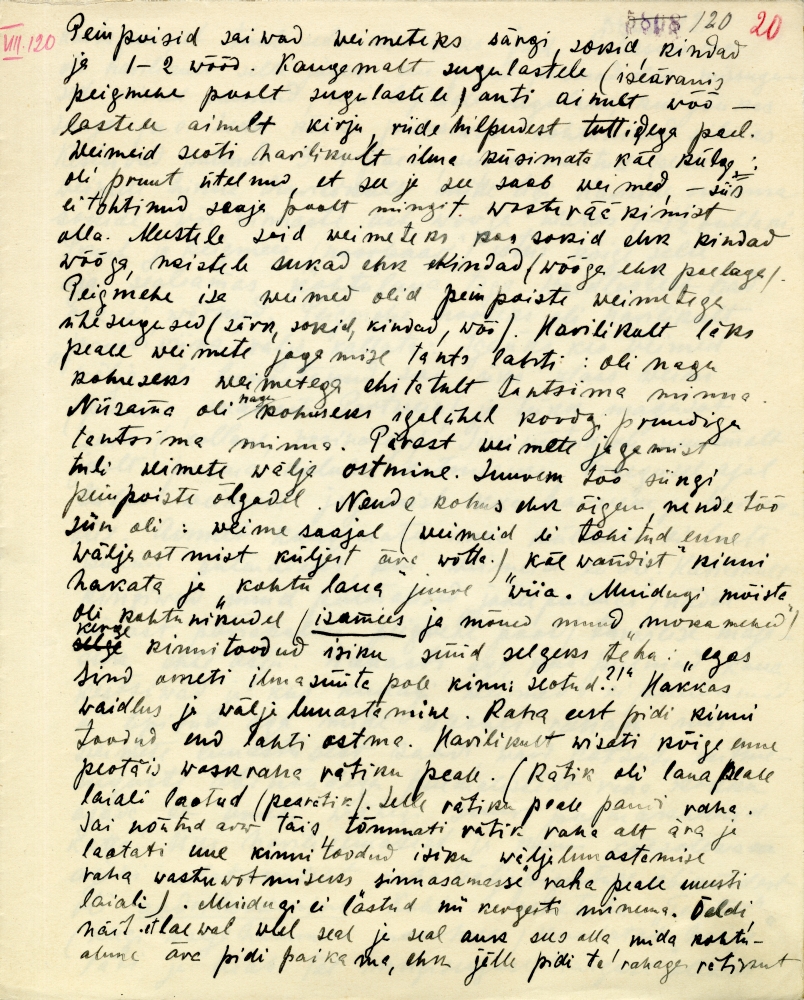 VIII.120
5808 /120 20
Peiupoisid saiwad weimeteks särgi, sokid, kindad
ja 1-2 wööd. Kaugemalt sugulastele (iseäranis
peigmehe poolt sugulastele) anti ainult wöö —
lastele ainult kirju, riide hilpudest tuttidega pael.
Weimeid seoti harilikult ilma küsimata käe külge;
oli pruut ütelnud, et see ja see saab weimed, — siis
ei tohtinud saaja poolt mingit wasterääkimist
olla. Meestele said weimeteks kas sokid ehk kindad
wööga, naistele sukad ehk kindad (wööga ehk paelaga).
Peigmehe isa weimed olid peiupoiste weimetega
ühesugused (särk, sokid, kindad, wöö). Harilikult läks
peale weimete jagamise tants lahti: oli nagu
kohuseks weimetega ehitatult tantsima minna.
Niisama oli nagu kohuseks igalühel kordgi pruudiga
tantsima minna. Pärast weimete jagamist
tuli weimete wälja ostmine. Suurem töö siingi
peiupoiste õlgadel. Nende kohus ehk õigem nende töö
siin oli: weime saajal (weimeid ei tohitud enne
wäljaostmist küljest ära wõtta.) käe wandist" kinni
hakata ja "kohtu laua" juure "wiia. Muidugi mõista
oli kohtunikudel (isamees ja mõned muud mokamehed")
kerge kinnitoodud isiku süüd selgeks teha: "egas
sind ometi ilmasüüta pole kinni seotud?!" Hakkas
waidlus ja wälja lunastamine. Raha eest pidi kinni
toodud end lahti ostma. Harilikult wisati kõige enne
peotäis waskraha rätiku peale. (Rätik oli laua peale
laiali laotud (pearätik). Selle rätiku peale pandi raha.
Sai nõutud arw täis, tõmmati rätik raha alt ära ja
laotati uue kinnitoodud isiku wäljalunastamise
raha wastuwõtmiseks sinnasamasse raha peale uuesti
laiali). Muidugi ei lastud nii kergesti minema. Öeldi
näit. et lae wal weel seal ja seal auk sees olla, mida kohtu-
alune ära pidi paikama, ehk jälle pidi ta rahaga rätikut